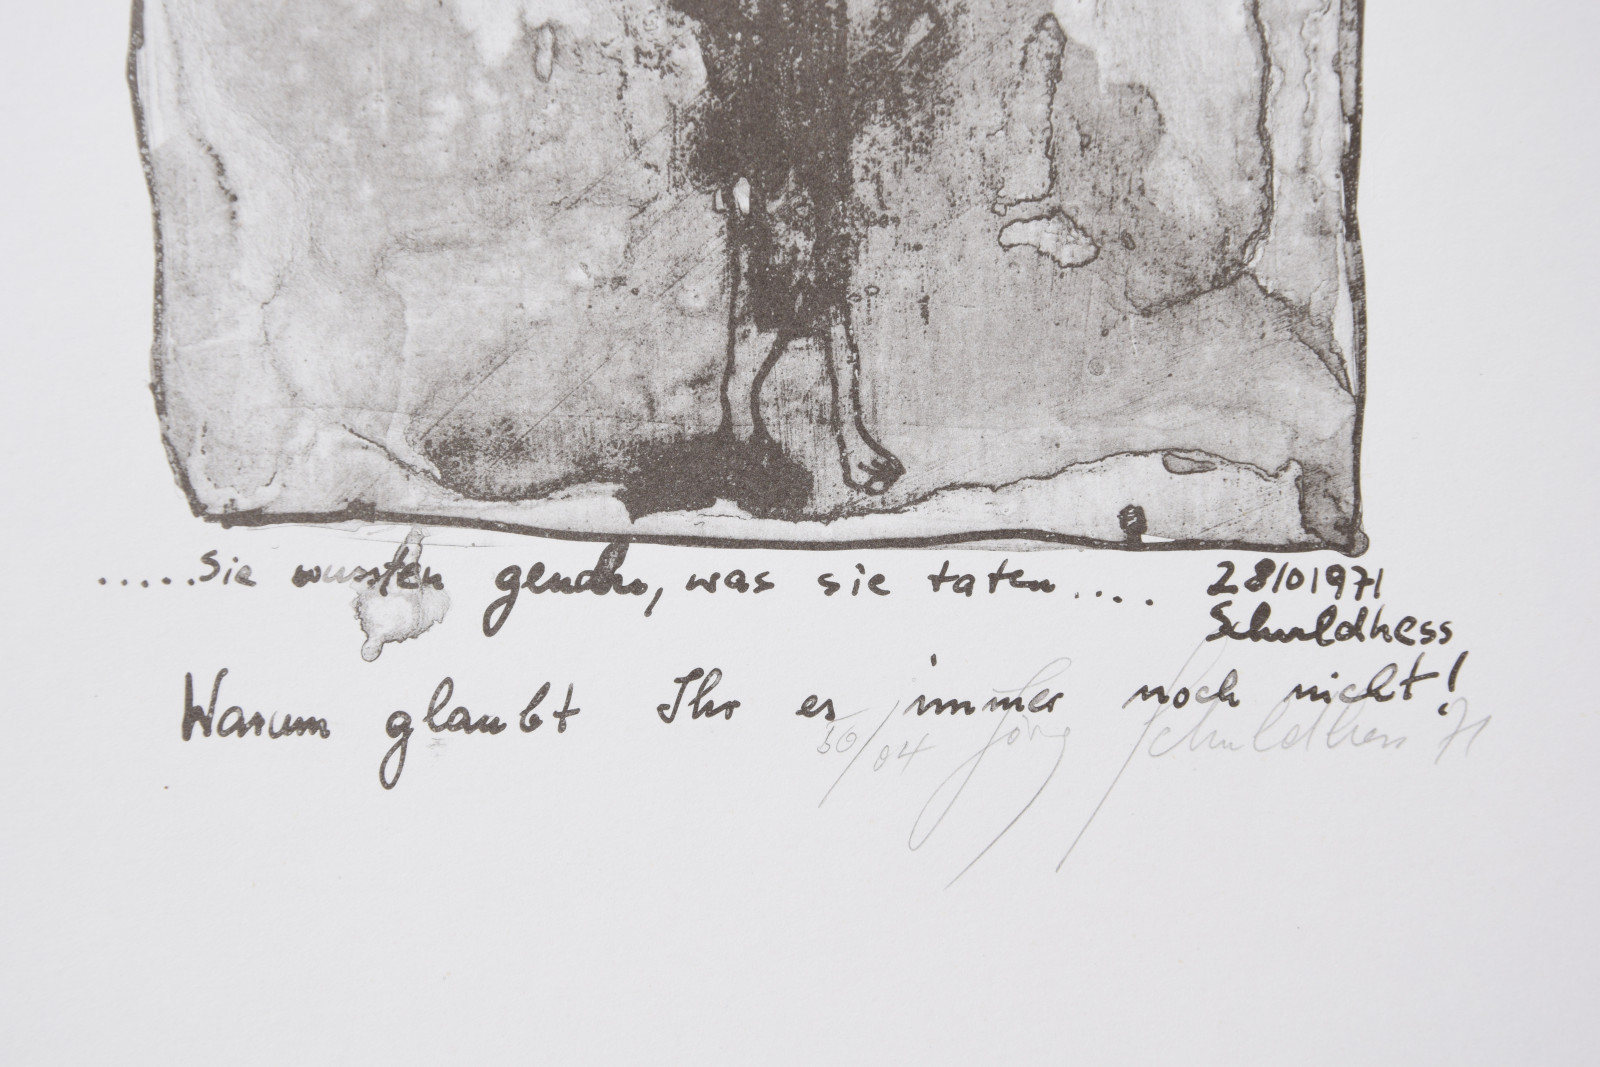 .....sie wussten genau, was sie taten.... 28101971
Schuldhess
Warum glaubt Ihr es immer noch nicht!
50/04 Jörg Schuldhess 71